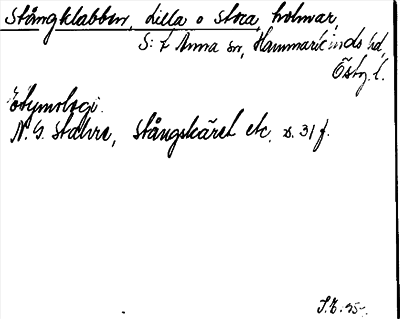 Stångklabben, lilla o stora, holmar,
S:t Anna sn, Hammarkinds hd,
Östg. l.
Etymologi.
N. G. Stahre, Stångskäret etc. s. 31 f.